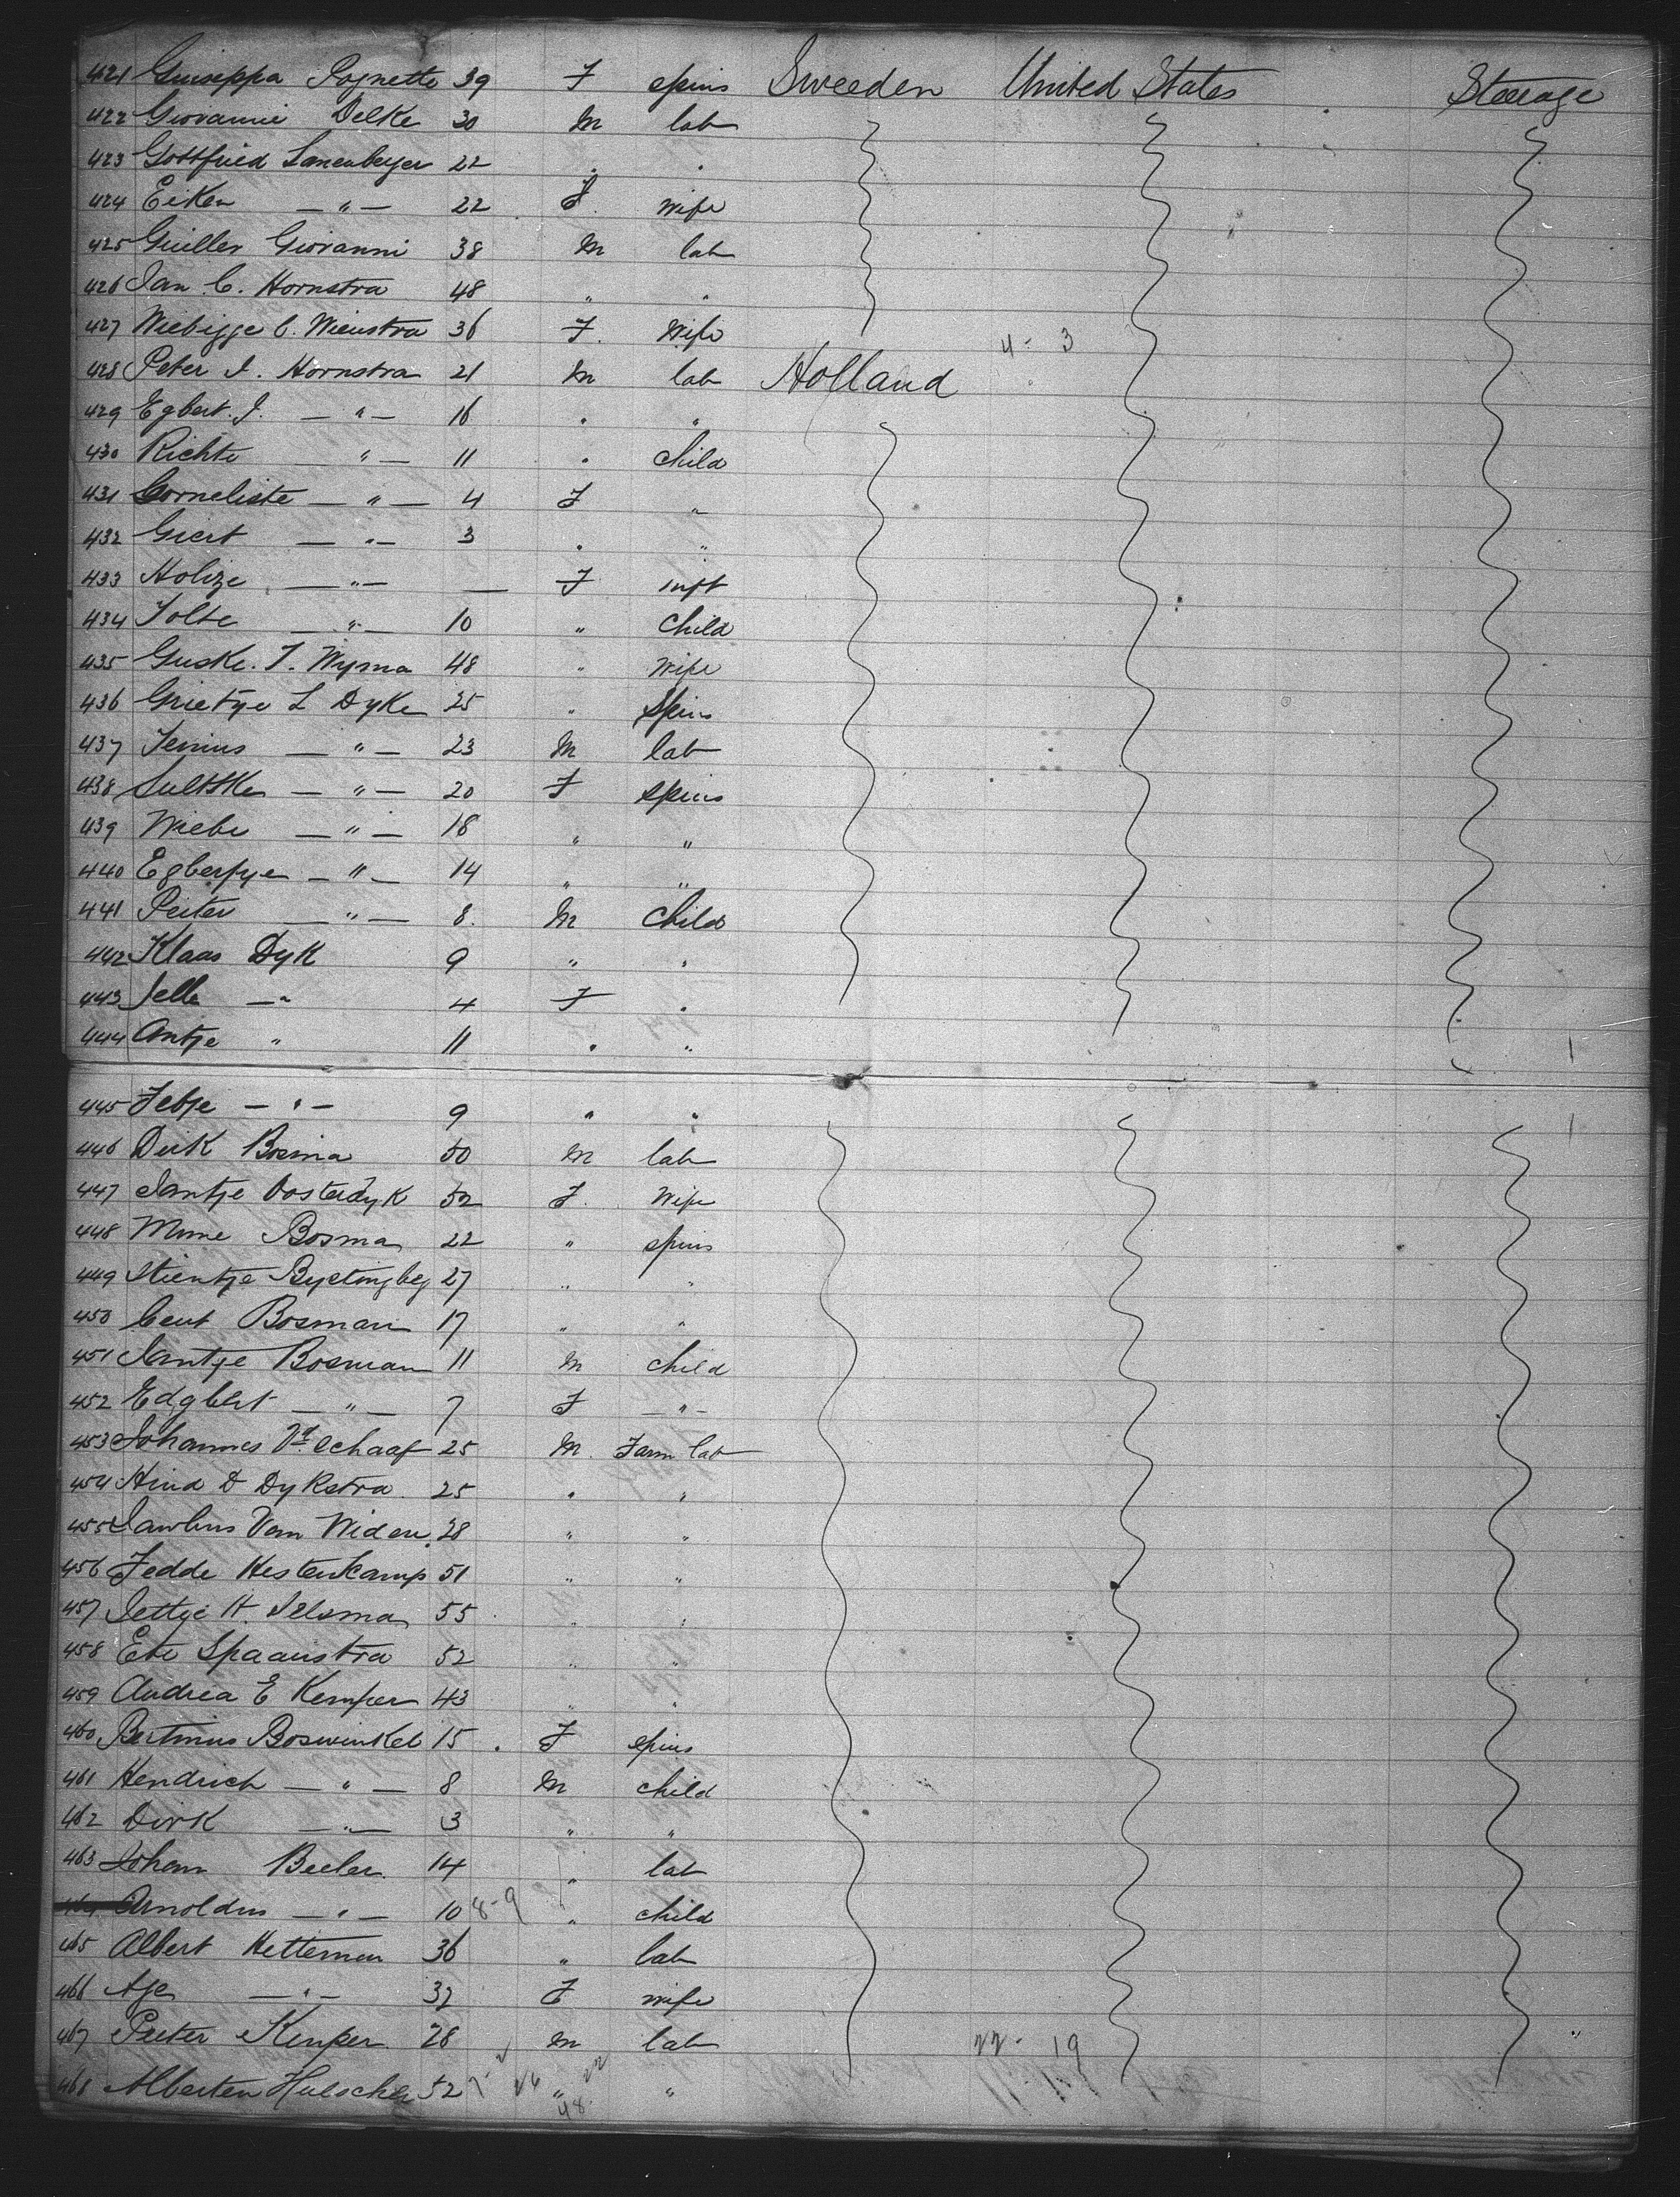 421 Guiseppa Pognetto 39 F spins Sweeden United States Steerage
422 Giovannie Delke 30 M lab
423 Gottfried Lanenberger 22 . .
424 Eiken — " — 22 F. wife
425 Guiller Giovanni 38 M lab
426 Jan C. Hornstra 48 " "
427 Wiebigge C. Wienstra 36 F. Wife 4 - 3
428 Peter I. Hornstra 21 M lab Holland
429 Egbert. J. — " — 16 . "
430 Richte — " — 11 . child
431 Corneliste — " — 4 F "
432 Giert — " — 3 . "
433 Holize — " — — F inft
434 Jolte — " — 10 " child
435 Guske. T. Wyma 48 " Wife
436 Grietye L Dyke 25 " Spins
437 Jenius — " — 23 M lab
438 Sultske — " — 20 F spins
439 Wiebe — " — 18 " "
440 Egbertye — " — 14 " "
441 Peiter — " — 8. M child
442 Klaas Dyk 9 " "
443 Jelle — " 4 F .
444 Antje " 11 . "
445 Jetje — " — 9 " "
446 Dirk Bosma 50 M lab
447 Jantje Oosterdyk 52 F. Wife
448 Mime Bosma 22 " spins
449 Stientje 27 " "
450 Bosman 17 " "
451 Jantje Bosman 11 M child
452 Edgbert — " — 7 F — " —
453 Johannes Vd Schaaf 25 M. Farm lab
454 Hind D Dykstra 25 . "
455 Van Widen 28 " "
456 Fedde Hestenkamp 51 " "
457 Jettje H. Jelsma 55 " "
458 Ete Spaanstra 52 " "
459 Andrea E Kemper 43 " "
460 Boswinkel 15 . F spins
461 Hendrich — " — 8 M child
462 Dirk — " — 3 " "
463 Johan Beeler 14 " lab
464 Arnoldus — " — 10 8-9 " child
465 Albert Hetteman 36 " lab
466 Aje — " — 32 F wife
467 Pieter Kemper 28 M lab 22 - 19
468 Alberten Hulscher 52 " "
48